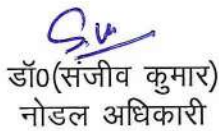 डॉ0(संजीव कुमार)
नोडल अधिकारी